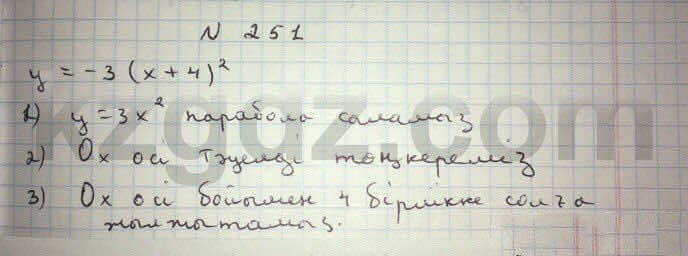 N 251
y = -3 (x+4)²
1) y = 3x² парабола саламыз
2) Ox осі тәуелді төңкереміз
3) Ox осі бойымен 4 бірлікке солға
жылжытамыз.
kzgdz.com